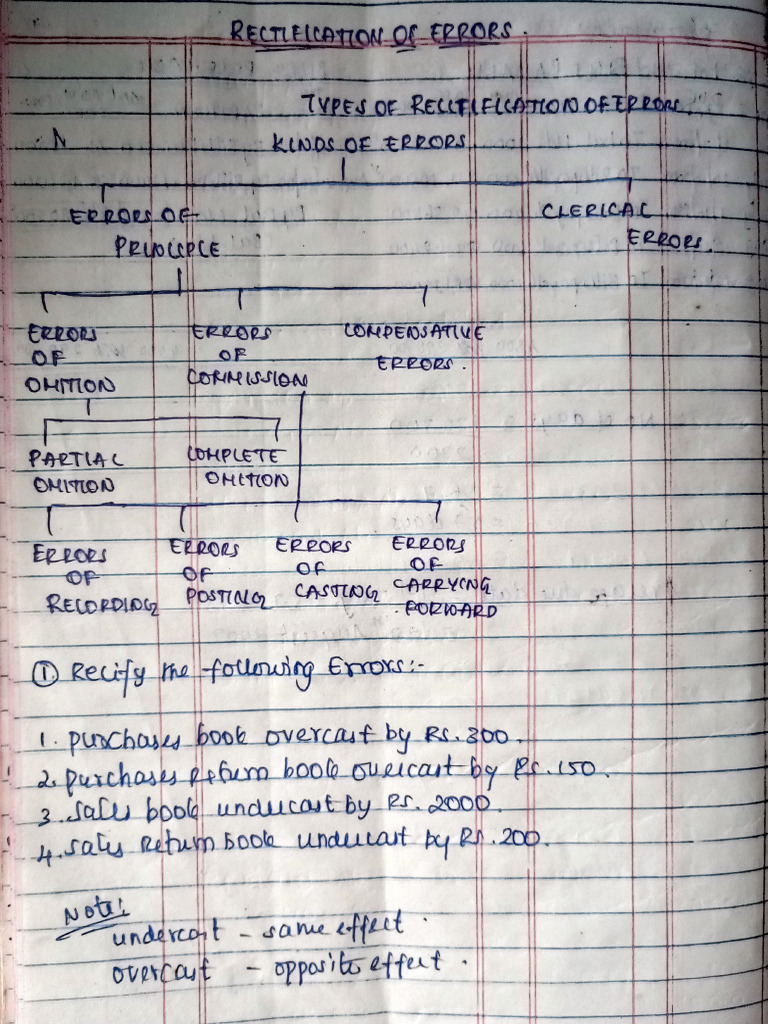 RECTIFICATION OF ERRORS.
TYPES OF RECTIFICATION OF ERRORS.
N
KINDS OF ERRORS
ERRORS OF CLERICAL
PRINCIPLE ERRORS.
ERRORS ERRORS COMPENSATIVE
OF OF ERRORS.
OMITION COMMISSION
PARTIAL COMPLETE
OMITION OMITION
ERRORS ERRORS ERRORS ERRORS
OF OF OF OF
RECORDING POSTING CASTING CARRYING
FORWARD
① Recify the following Errors:-
1. purchases book overcast by Rs. 300.
2. purchases return book overcast by Rs. 150.
3. sales book undercast by Rs. 2000.
4. sales Return book undercast by Rs. 200.
Note:
undercast - same effect.
overcast - opposite effect.